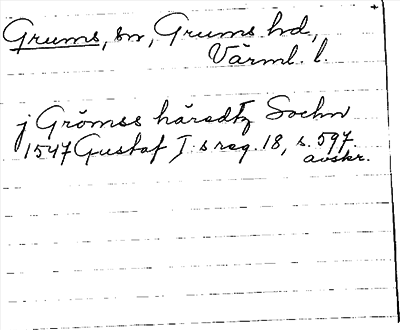 Grums, sn, Grums hd,
Värml. l.
j Grömss häradtz Sochn
1547 Gustaf I:s reg. 18, s. 597.
avskr.